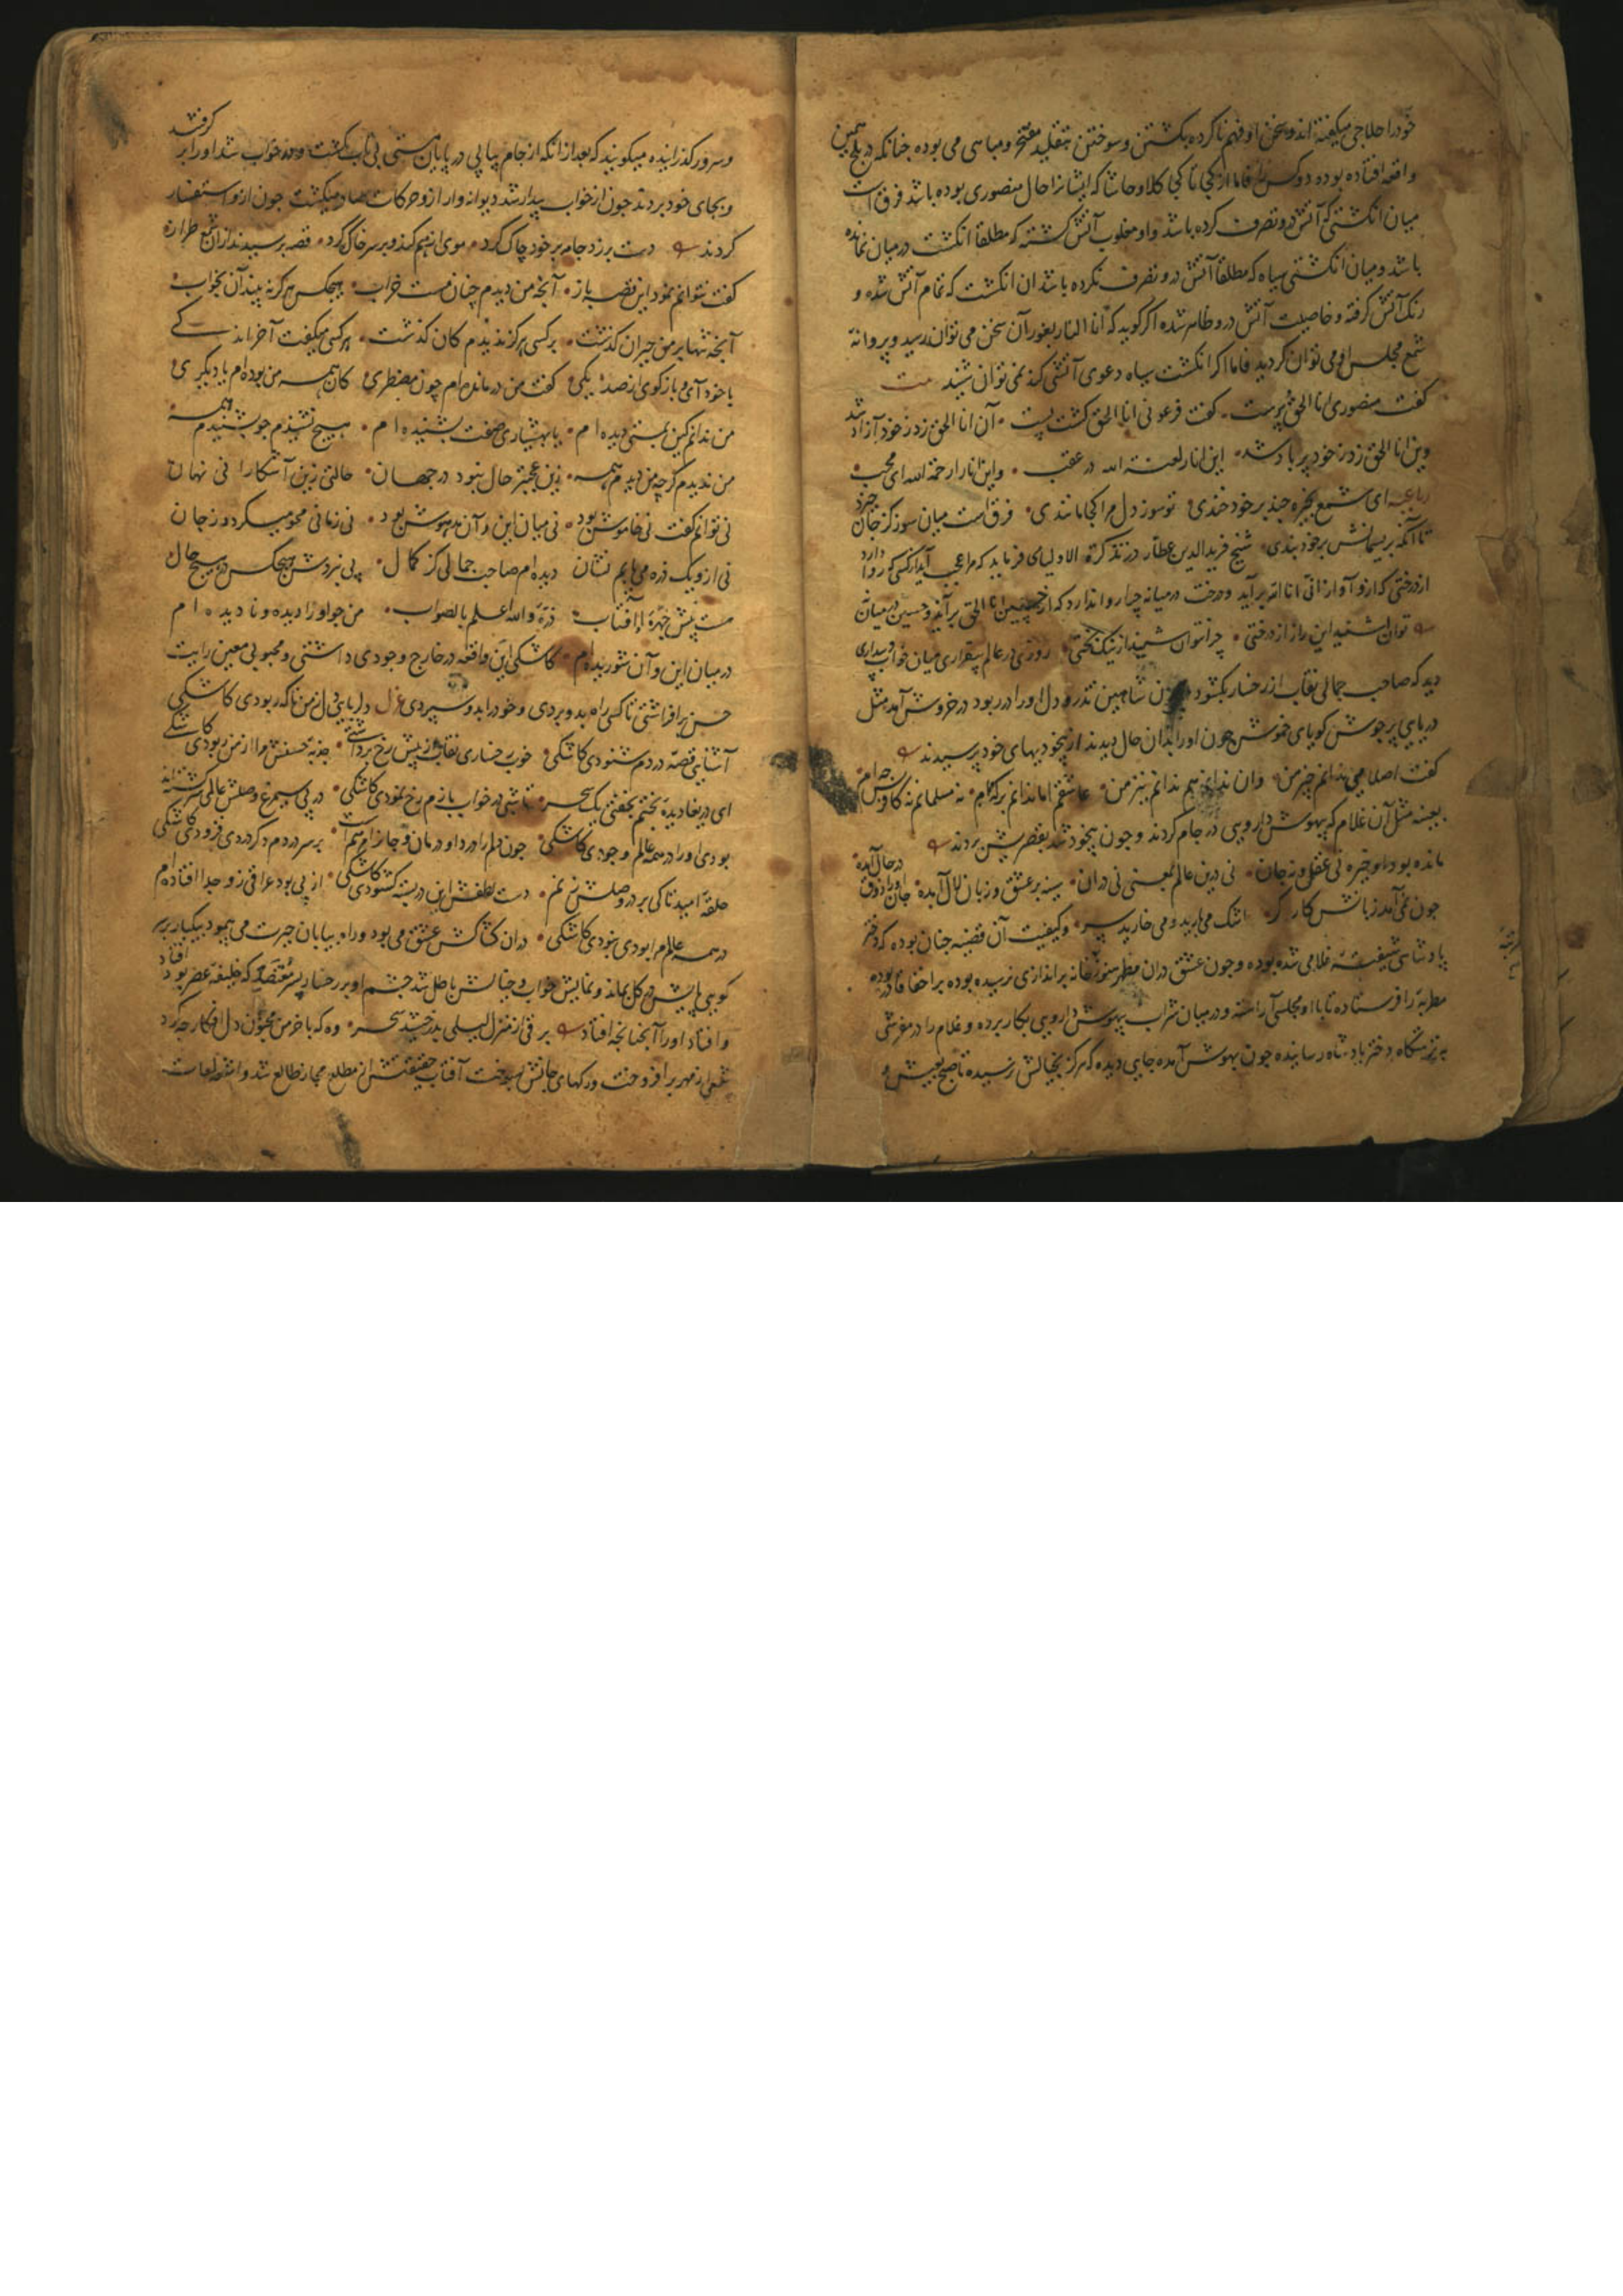 خود را حلاجی میگفته اند و سخن او فهم ناکرده بکشتن و سوختن بتقلید مفتخر و مباهی می بوده چنانکه در بلخ همین
واقعه افتاده بوده دو کس را فاما از کجا تا کجا کلا و حاشا که ایشانرا حال منصوری بوده باشد فرق است
میان انکشتی که آتش درو تصرف کرده باشد و او مغلوب آتش کشته که مطلقا انکشت در میان نمانده
باشد و میان انکشتی سیاه که مطلقا آتش درو تصرف نکرده باشد ان انکشت که تمام آتش شده و
رنک آتش کرفته و خاصیت آتش درو ظاهر شده اکر کوید که انا النار بغور آن سخن می توان رسید و پروانه
شمع مجلس او می توان کردید فاما اکر انکشت سیاه دعوی آتشی کند نمی توان شنید
کفت منصوری انا الحق برست کفت فرعونی انا الحق کشت پست آن انا الحق زد ز خود آزاد شد
وین انا الحق زد ز خود بر باد شد این انا را لعنة الله در عقب وان انا را رحمة الله ای محب
رباعیه ای شمع بخیره چند بر خود خندی تو سوز دل مرا کجا مانندی فرق است میان سوز کز جان خیزد
تا آنکه بریسمانش بر خود بندی شیخ فرید الدین عطار در تذکرة الاولیا می فرماید که مرا عجب آید از کسی که روا دارد
از درختی که ازو آواز انی انا الله برآید و درخت در میانه چرا روا ندارد که از حسین انا الحق برآید و حسین در میان نه
توان شنید این راز از درختی چرا نتوان شنید از نیک بختی روزی در عالم بیقراری میان خواب و بیداری
دید که صاحب جمالی نقاب از رخسار بکشود چون شاهین تذرو دل او را در ربود در خروش آمد مثل
دریایی پر جوش کویای خموش چون او را بدان حال دیدند از بیخودیهای خود پرسیدند
کفت اصلا می ندانم چیز من وان ندانم هم ندانم نیز من عاشقم اما ندانم بر که ام نه مسلمانم نه کافر پس چه ام
بعینه مثل آن غلام که بیهوش دارویی در جام کردند و چون بیخود شد بقصرش بردند
مانده بود او خیره نی عقل و نه جان نی درین عالم بمعنی نی دران سینه پر عشق و زبان لال آمده جان او از ذوق در حال آمده
چون نمی آمد زبانش کارکر اشک می بارید و می خارید سر و کیفیت آن قضیه چنان بوده که دختر
پادشاهی شیفته غلامی شده بوده و چون عشق دران مظهر هنوز خانه براندازی نرسیده بوده براخفا قادر بوده
مطربه را فرستاده تا با او مجلسی آراسته و در میان شراب بیهوش دارویی بکار برده و غلام را در مفرشی
بنزهتکاه دختر پادشاه رسانیده چون بهوش آمده جایی دیده که هرکز بخیالش نرسیده تا صبح بعیش و
و سرور کذرانیده میکویند که بعد از آنکه از جام پیاپی در پایان مستی بی تاب کشت و در خواب شد او را بر کرفتند
و بجای خود بردند چون از خواب بیدار شد دیوانه وار ازو حرکات صادر میکشت چون ازو استفسار
کردند دست برزد جامه بر خود چاک کرد موی از هم کند و بر سر خاک کرد قصه پرسیدند ازان شمع طراز
کفت نتوانم نمود این قصه باز آنچه من دیدم چنان مست خراب هیچکس هرکز نه بیند آن بخواب
آنچه تنها بر من حیران کذشت بر کسی هرکز ندیدم کان کذشت هر کسی میکفت آخر اندکی
با خود آی و باز کوی از صد یکی کفت من درمانده ام چون مضطری کان همه من بوده ام یا دیکری
من ندانم کین بمستی دیده ام یا بهشیاری صفت بشنیده ام هیچ نشنیدم چو بشنیدم همه
من ندیدم کرچه من دیدم همه زین عجبتر حال نبود در جهان حالتی زین آشکارا نی نهان
نی توانم کفت نی خاموش بود نی میان این و آن مدهوش بود نی زمانی محو میکردد ز جان
نی ازو یک ذره می یابم نشان دیده ام صاحب جمالی کز کمال پی نبردش هیچکس در هیچ حال
هست پیش چهره او آفتاب ذره والله اعلم بالصواب من چو او را دیده و نا دیده ام
در میان این و آن شوریده ام کاشکی این واقعه در خارج وجودی داشتی و محبوبی معین رایت
حسن برافراشتی تا کسی راه بدو بردی و خود را بدو سپردی غزل دلربایی دل ز من ناکه ربودی کاشکی
آشنایی قصه دردم شنودی کاشکی خوب رخساری نقاب از پیش رخ برداشتی جذبه حسنش مرا از من ربودی کاشکی
ای دریغا دیده بختم بخفتی یک سحر تا شبی در خواب بازم رخ نمودی کاشکی در پی سیمرغ وصلش عالمی سرکشته اند
بودی او را در همه عالم وجودی کاشکی چون دلم را درد او درمان و جانرا مرهم است بر سر دردم دکر دردی فزودی کاشکی
حلقه امید تا کی بر در وصلش زنم دست لطفش این در بسته کشودی کاشکی از پی بود عراقی زو جدا افتاده ام
در همه عالم مرا بودی نبودی کاشکی دران کشاکش عشق می بود و راه بیابان حیرت می پیمود بیکبار بر سر
کویی پایش در کل بماند و نمایش خواب و خیالش باطل شد چشم او بر رخسار پسر مُعْتَضِد که خلیفه عصر بود افتاد
و افتاد او را آنچنانچه افتاد برقی از منزل لیلی بدرخشید سحر وه که با خرمن مجنون دل افکار چه کرد
شعله از مهر برافروخت و رکهای جانش بسوخت آفتاب حقیقتش از مطلع مجاز طالع شد و انقطاعات